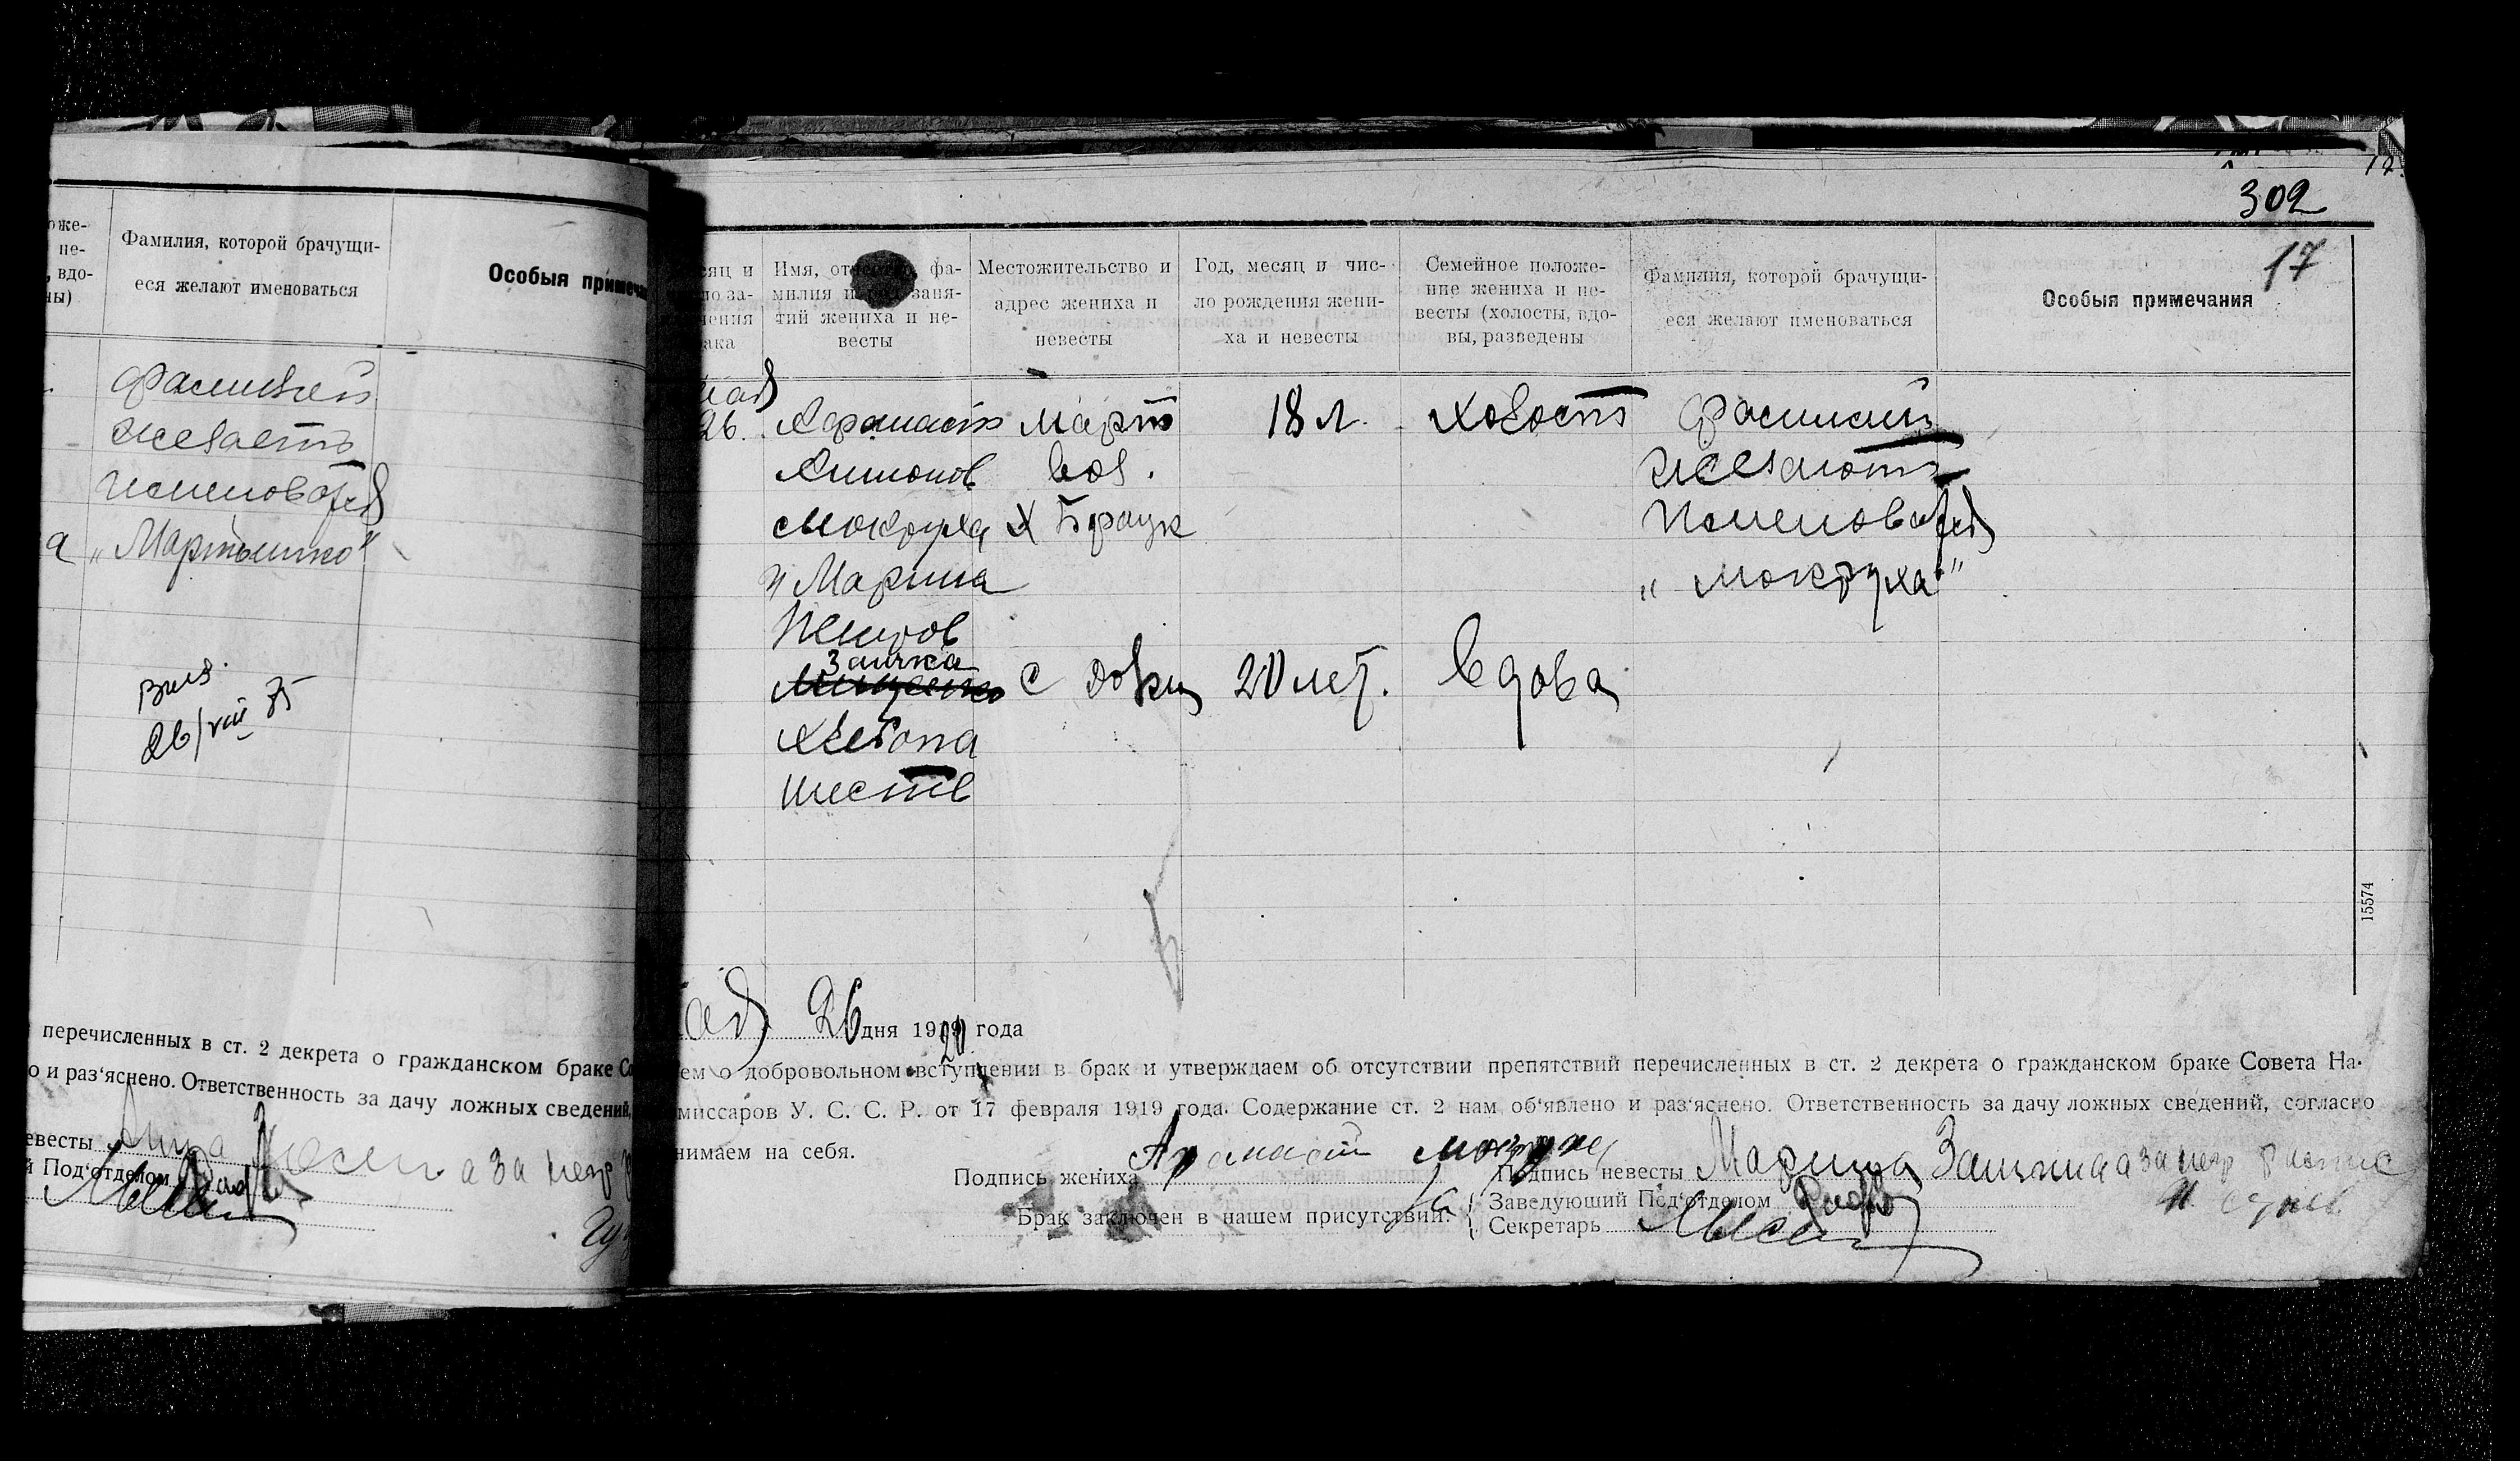 оже-
не-
, вдо-
ны)
Фамилия, которой брачущи-
еся желают именоваться
Особыя примеча
фамилией
желаетъ
именоватся
а „Мартыненко"
26/VIII 75
перечисленных в ст. 2 декрета о гражданском браке Со
о и раз‘яснено. Ответственность за дачу ложных сведений,
евесты Анна а за негр
й Под‘отделом
12
302
17
сяц и
ло за-
чения
ака
Имя, отчество, фа-
милия и род заня-
тий жениха и не-
весты
Местожительство и
адрес жениха и
невесты
Год, месяц и чис-
ло рождения жени-
ха и невесты
Семейное положе-
ние жениха и не-
весты (холосты, вдо-
вы, разведены
Фамилия, которой брачущи-
еся желают именоваться
Особыя примечания
мая
26. Афанасiй Март 18 л. холостъ фамилией
Антонов вол. желаютъ
Мокруха Х Брацк именоватся
и Марина „Мокруха"
Петров
Заичка
с 20 лет. вдова
хлебопа
шеств
15574
мая 26 дня 1920 года
ем о добровольном вступлении в брак и утверждаем об отсутствии препятствий перечисленных в ст. 2 декрета о гражданском браке Совета На-
миссаров У. С. С. Р. от 17 февраля 1919 года. Содержание ст. 2 нам об‘явлено и раз‘яснено. Ответственность за дачу ложных сведений, согласно
нимаем на себя.
Подпись жениха Афанасий Мокруха Подпись невесты Марина Заичкина а за негр распис
Брак заключен в нашем присутствии: За Заведующий Под‘отделом
Секретарь